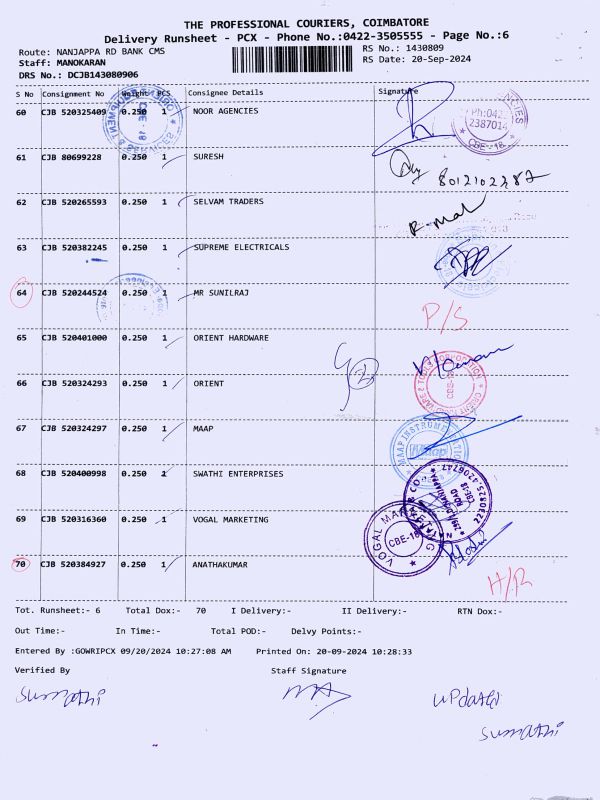 THE PROFESSIONAL COURIERS, COIMBATORE
Delivery Runsheet - PCX - Phone No.:0422-3505555 - Page No.:6
Route: NANJAPPA RD BANK CMS RS No.: 1430809
Staff: MANOKARAN RS Date: 20-Sep-2024
DRS No.: DCJB143080906
S No Consignment No Weight PCS Consignee Details Signature
60 CJB 520325409 0.250 1 NOOR AGENCIES
Ph:042
2387014
CBE-18
61 CJB 80699228 0.250 1 SURESH
8012102387
62 CJB 520265593 0.250 1 SELVAM TRADERS
R-Mal
63 CJB 520382245 0.250 1 SUPREME ELECTRICALS
64 CJB 520244524 0.250 1 MR SUNILRAJ
P/S
65 CJB 520401000 0.250 1 ORIENT HARDWARE
66 CJB 520324293 0.250 1 ORIENT
CBE-18
67 CJB 520324297 0.250 1 MAAP
MAAP INSTRUMENT
Maap
68 CJB 520400998 0.250 1 SWATHI ENTERPRISES
CBE-18
69 CJB 520316360 0.250 1 VOGAL MARKETING
VOGAL MARKETING
CBE-18
70 CJB 520384927 0.250 1 ANATHAKUMAR
H/R
Tot. Runsheet:- 6 Total Dox:- 70 I Delivery:- II Delivery:- RTN Dox:-
Out Time:- In Time:- Total POD:- Delvy Points:-
Entered By :GOWRIPCX 09/20/2024 10:27:08 AM Printed On: 20-09-2024 10:28:33
Verified By Staff Signature
Sumathi updated
Sumathi